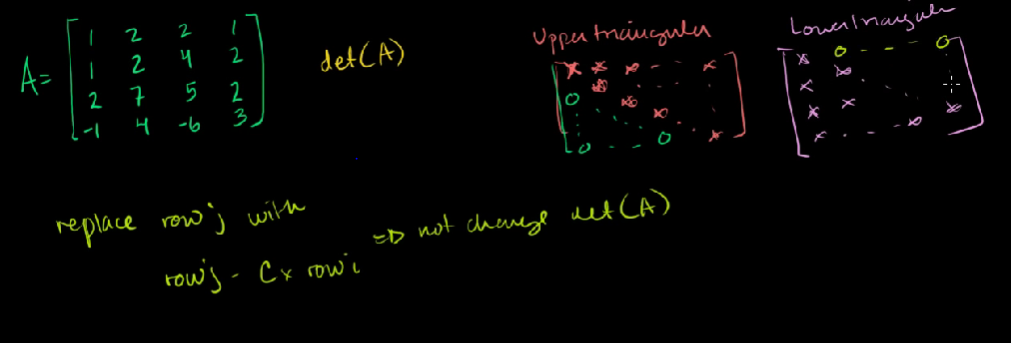 A = [ 1 2 2 1
1 2 4 2
2 7 5 2
-1 4 -6 3 ]
det(A)
Upper triangular
x x x - - x
0 x
x
x
0 - - 0 x
Lower triangular
x 0 - - - 0
x x
x x x
x - - x
replace row j with
row j - C x row i
=> not change det(A)